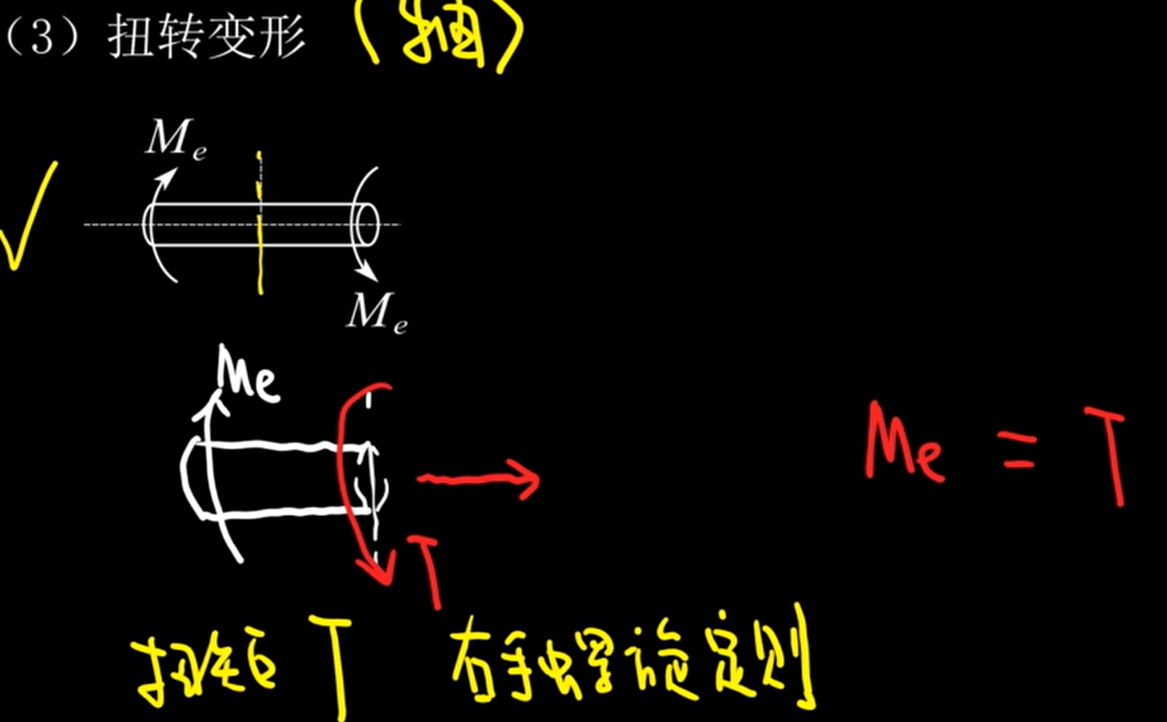 (3)扭转变形 (轴)
Me
Me
Me
Me = T
T
扭矩 T 右手螺旋定则